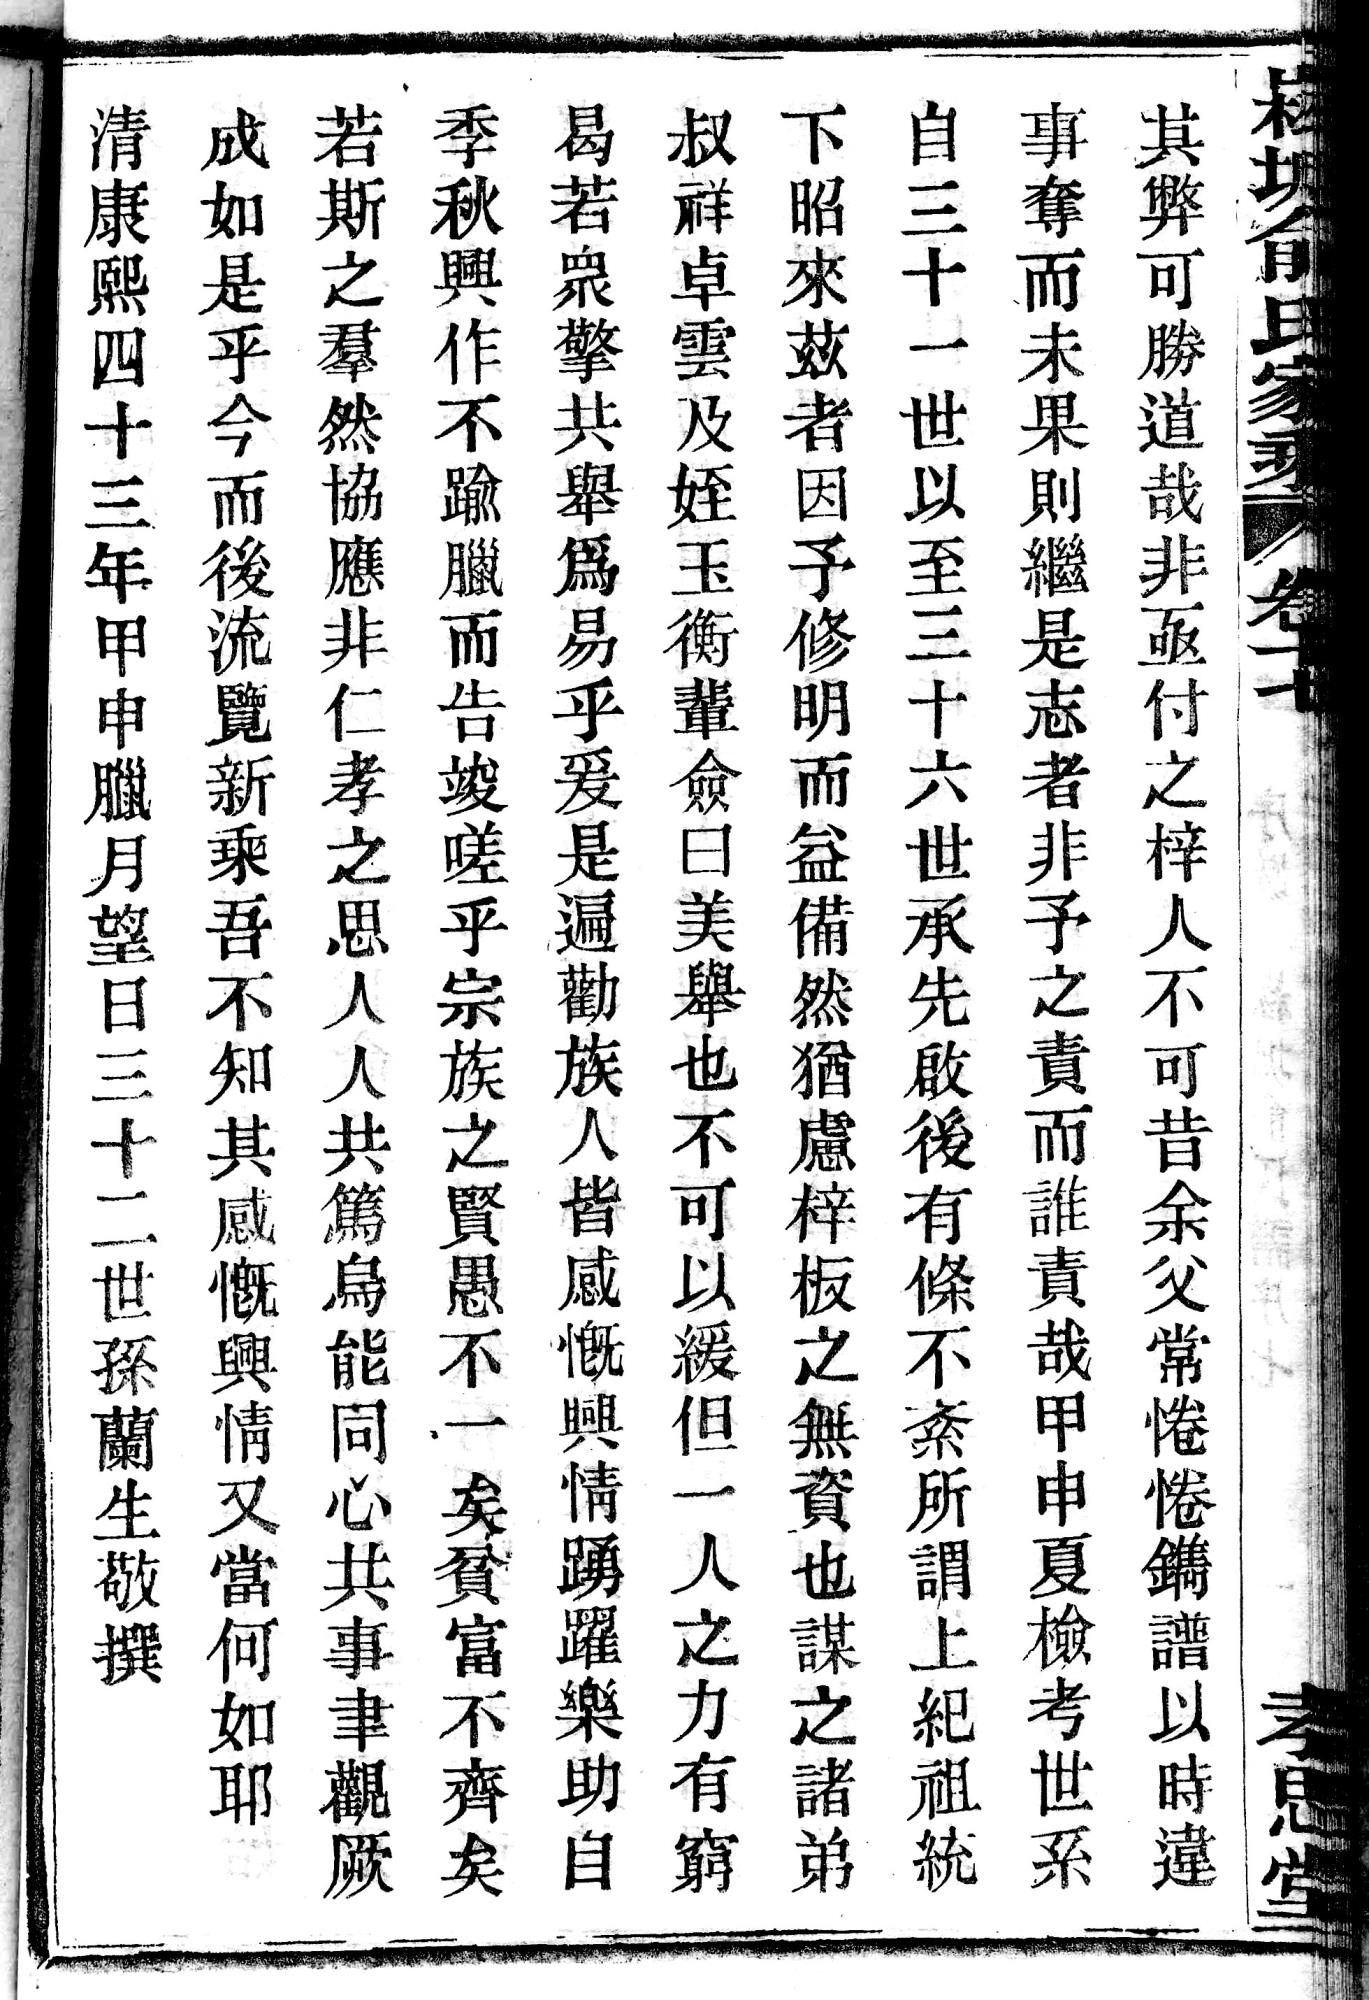 俞氏家乘 卷十七 孝思堂
其弊可勝道哉非亟付之梓人不可昔余父常惓惓鐫譜以時違
事奪而未果則繼是志者非予之責而誰責哉甲申夏檢考世系
自三十一世以至三十六世承先啟後有條不紊所謂上紀祖統
下昭來茲者因予修明而益備然猶慮梓板之無資也謀之諸弟
叔祥卓雲及姪玉衡輩僉曰美舉也不可以緩但一人之力有窮
曷若眾擎共舉爲易乎爰是遍勸族人皆感慨興情踴躍樂助自
季秋興作不踰臘而告竣嗟乎宗族之賢愚不一矣貧富不齊矣
若斯之羣然協應非仁孝之思人人共篤烏能同心共事聿觀厥
成如是乎今而後流覽新乘吾不知其感慨興情又當何如耶
清康熙四十三年甲申臘月望日三十二世孫蘭生敬撰